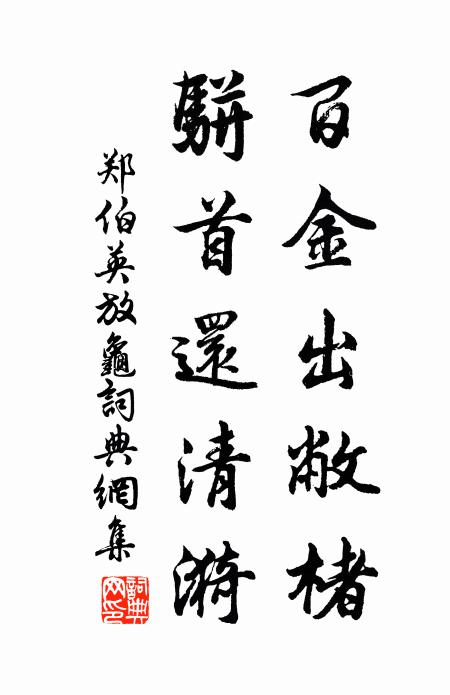 百金出敝楮
駢首還清漪
郑伯英放龜詞典網集
詞典網印